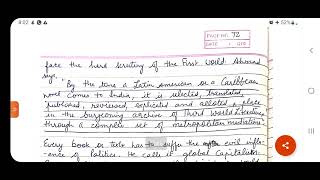 8:02
52%
PAGE NO. 72
DATE
face the hard scrutiny of the First World. Ahmad
says,
"By the time a Latin American or a Caribbean
novel comes to India, it is selected, translated,
published, reviewed, explicated and alloted a place
in the burgeoning archive of Third World Literature
through a complex set of metropolitan mediations
Every book or text has to suffer the evil influ-
ence of Politics. He calls it global Capitalism